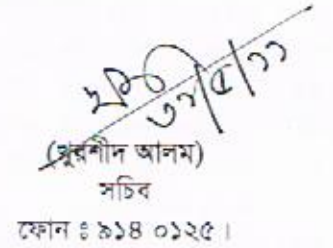 ৩১/৫/১১
(খুরশীদ আলম)
সচিব
ফোন ঃ ৯১৪ ০১২৫।